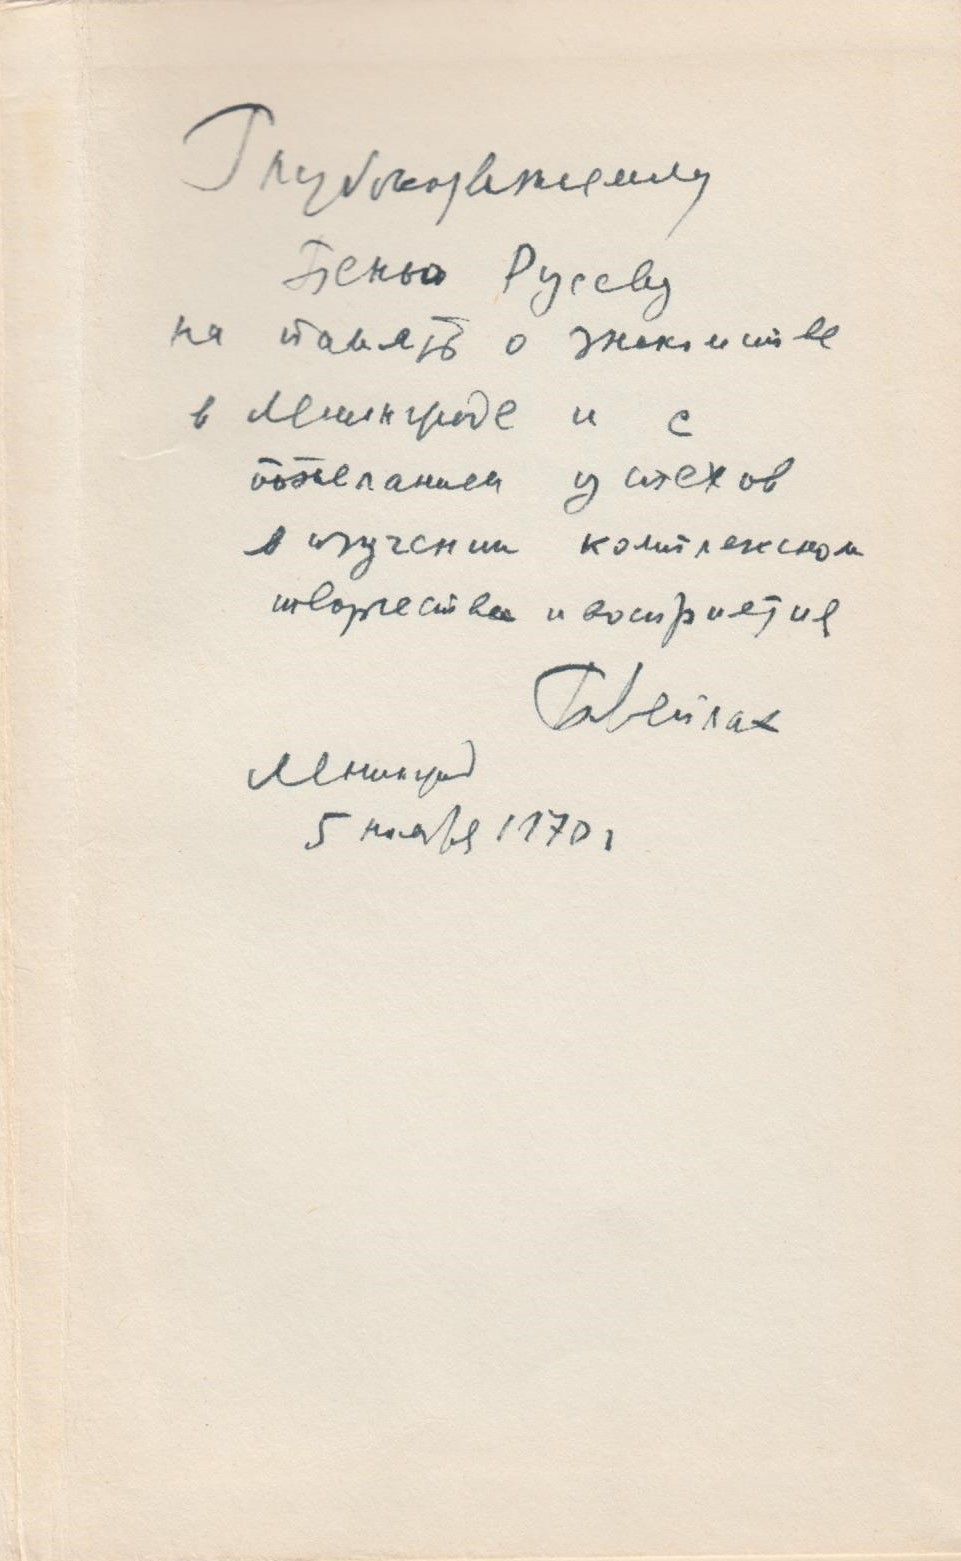 Глубокоуважаемому
Пеньо Русеву
на память о знакомстве
в Ленинграде и с
пожеланием успехов
в изучении комплексном
творчества и восприятия
Б Мейлах
Ленинград
5 ноября 1970 г